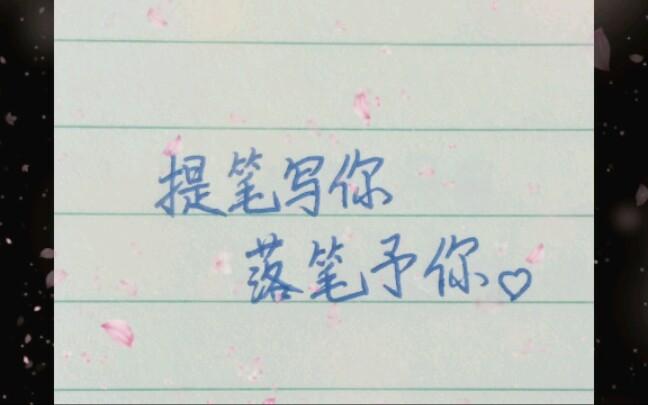 提笔写你
落笔予你♡